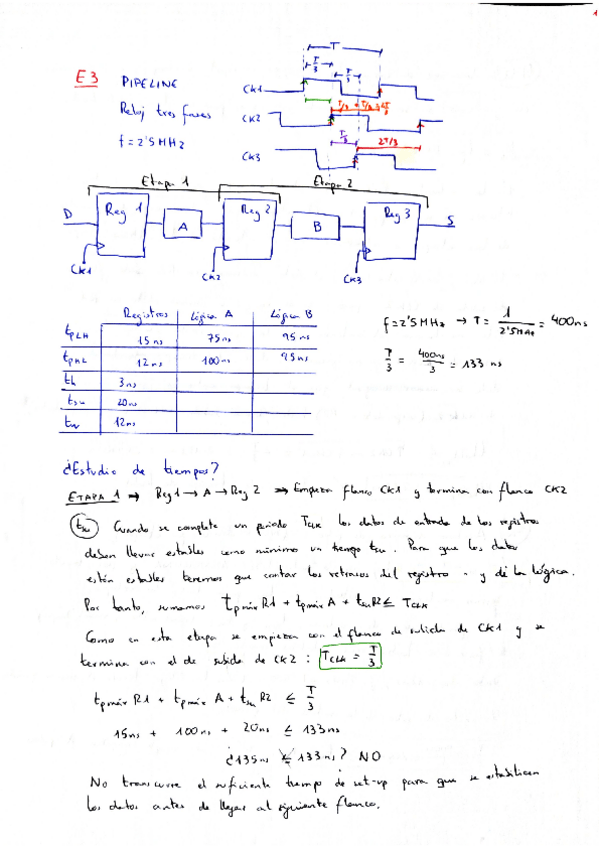 1
E3 PIPELINE
Reloj tres fases
f = 2'5 MHz
T
T/3
T/3
CK1
T/3 + T/3 = 2T/3
CK2
T/3
2T/3
CK3
Etapa 1
Etapa 2
D
Reg 1
A
Reg 2
B
Reg 3
S
CK1
CK2
CK3
Registros Lógica A Lógica B
tPLH 15 ns 75 ns 95 ns
tPHL 12 ns 100 ns 95 ns
th 3 ns
tsu 20 ns
tw 12 ns
f = 2'5 MHz → T = 1/2'5MHz = 400 ns
T/3 = 400ns/3 = 133 ns
¿Estudio de tiempos?
ETAPA 1 → Reg 1 → A → Reg 2 → Empieza flanco CK1 y termina con flanco CK2
tsu Cuando se complete un periodo TCLK los datos de entrada de los registros
deben llevar estables como mínimo un tiempo tsu. Para que los datos
estén estables tenemos que contar los retrasos del registro y de la lógica.
Por tanto, sumamos tpmáx R1 + tpmáx A + tsu R2 ≤ TCLK
Como en esta etapa se empieza con el flanco de subida de CK1 y se
termina con el de subida de CK2 : TCLK = T/3
tpmáx R1 + tpmáx A + tsu R2 ≤ T/3
15 ns + 100 ns + 20 ns ≤ 133 ns
¿135 ns ≤ 133 ns? NO
No transcurre el suficiente tiempo de set-up para que se estabilicen
los datos antes de llegar al siguiente flanco.